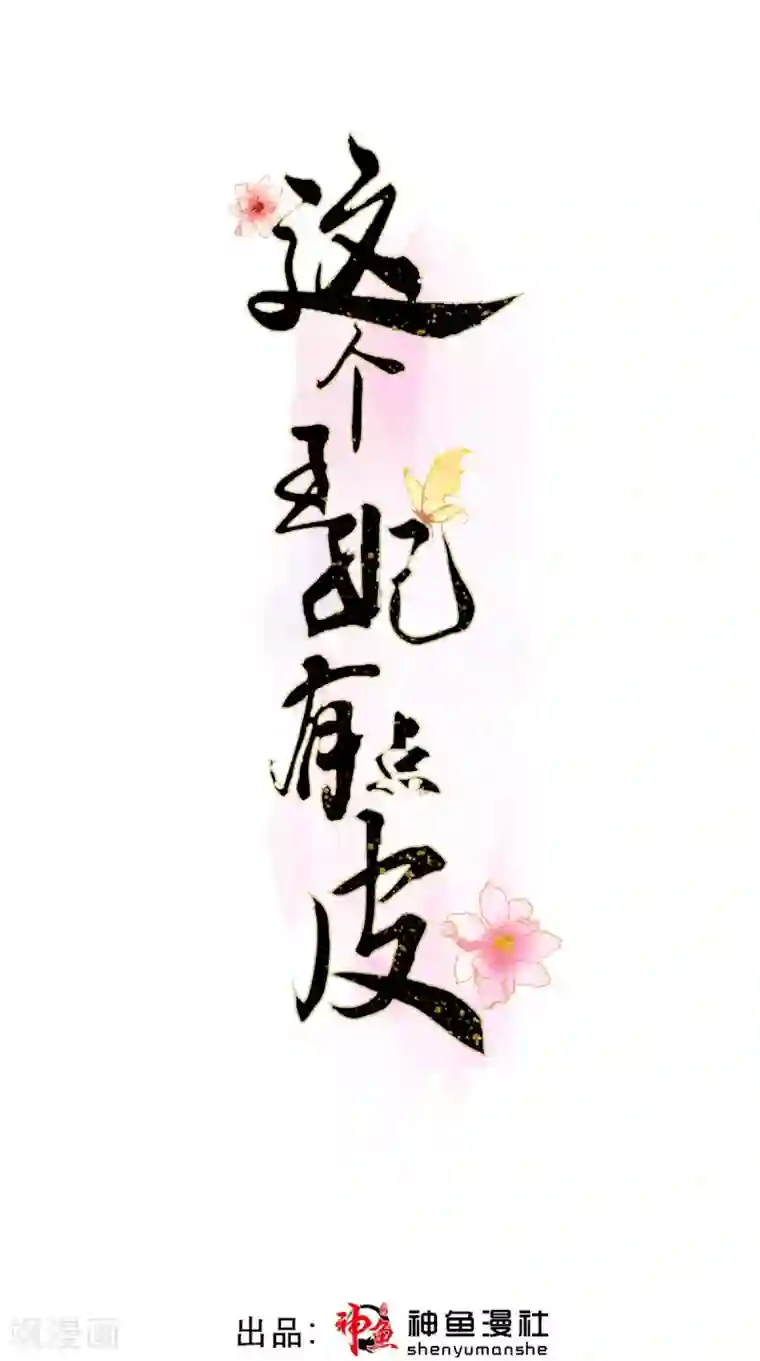 这个王妃有点皮
飒漫画
出品：神鱼 神鱼漫社
shenyumanshe